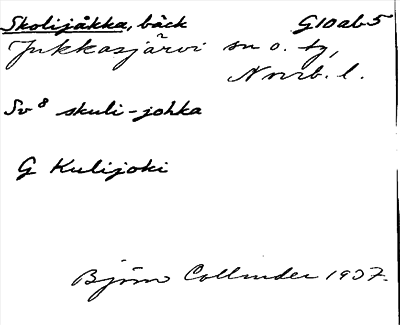 Skolijåkka, bäck G10ab5
Jukkasjärvi sn o. tg,
Norrb. l.
Sv⁸ skuli-johka
G Kulijoki
Björn Collinder 1937.